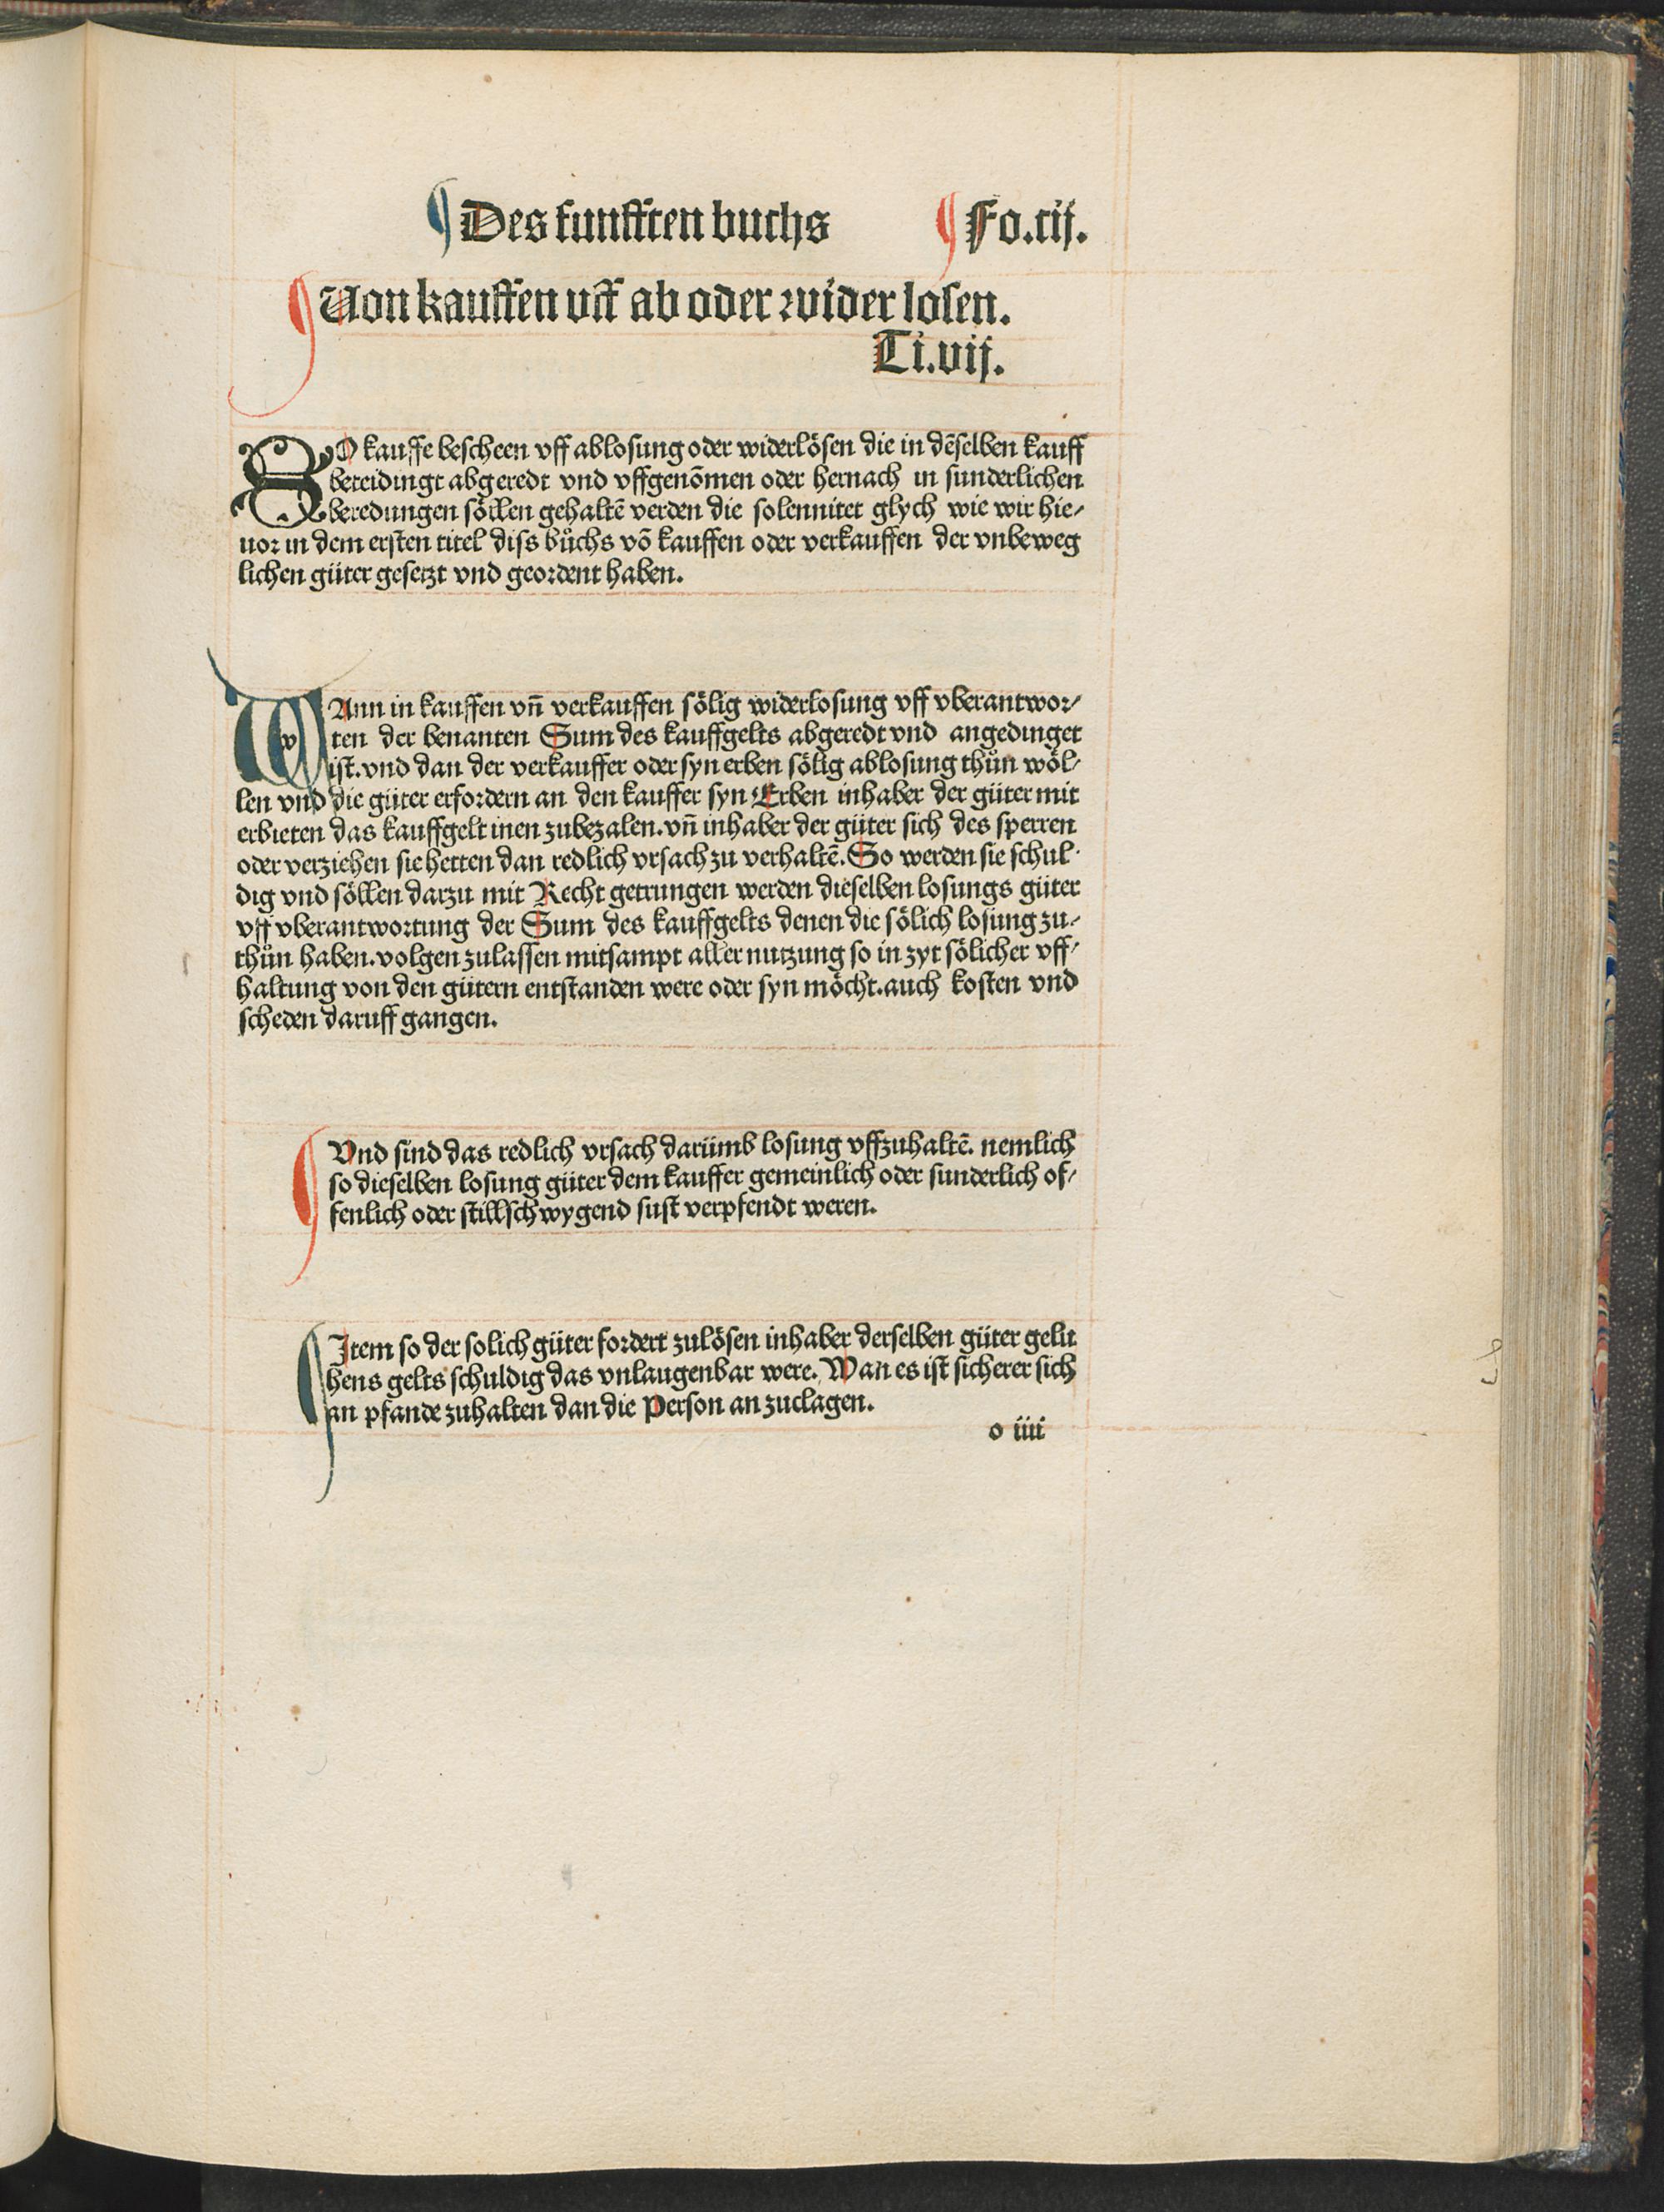 ¶ Des funfften buchs ¶ Fo.cij.
¶ Von kauffen vff ab oder wider losen.
Ti.vij.
SO kauffe bescheen vff ablosung oder widerlösen die in dēselben kauff
beteidingt abgeredt vnd vffgenōmen oder hernach in sunderlichen
beredungen söllen gehaltē werden die solennitet glych wie wir hie/
uor in dem ersten titel diss bůchs vō kauffen oder verkauffen der vnbeweg
lichen güter gesetzt vnd geordent haben.
WAnn in kauffen vn̄ verkauffen sölig widerlosung vff vberantwor/
ten der benanten Sum des kauffgelts abgeredt vnd angedinget
ist. vnd dan der verkauffer oder syn erben sölig ablosung thůn wöl/
len vnd die güter erfordern an den kauffer syn Erben inhaber der güter mit
erbieten das kauffgelt inen zubezalen. vn̄ inhaber der güter sich des sperren
oder verziehen sie hetten dan redlich vrsach zu verhaltē. So werden sie schul/
dig vnd söllen darzu mit Recht getrungen werden dieselben losungs güter
vff vberantwortung der Sum des kauffgelts denen die sölich losung zu/
thůn haben. volgen zulassen mitsampt aller nutzung so in zyt sölicher vff/
haltung von den gütern entstanden were oder syn möcht. auch kosten vnd
scheden daruff gangen.
¶ Vnd sind das redlich vrsach darümb losung vffzuhaltē. nemlich
so dieselben losung güter dem kauffer gemeinlich oder sunderlich of/
fenlich oder stillschwygend sust verpfendt weren.
¶ Item so der solich güter fordert zulösen inhaber derselben güter gelu
hens gelts schuldig das vnlaugenbar were. Wan es ist sicherer sich
an pfande zuhalten dan die Person an zuclagen.
o iiii